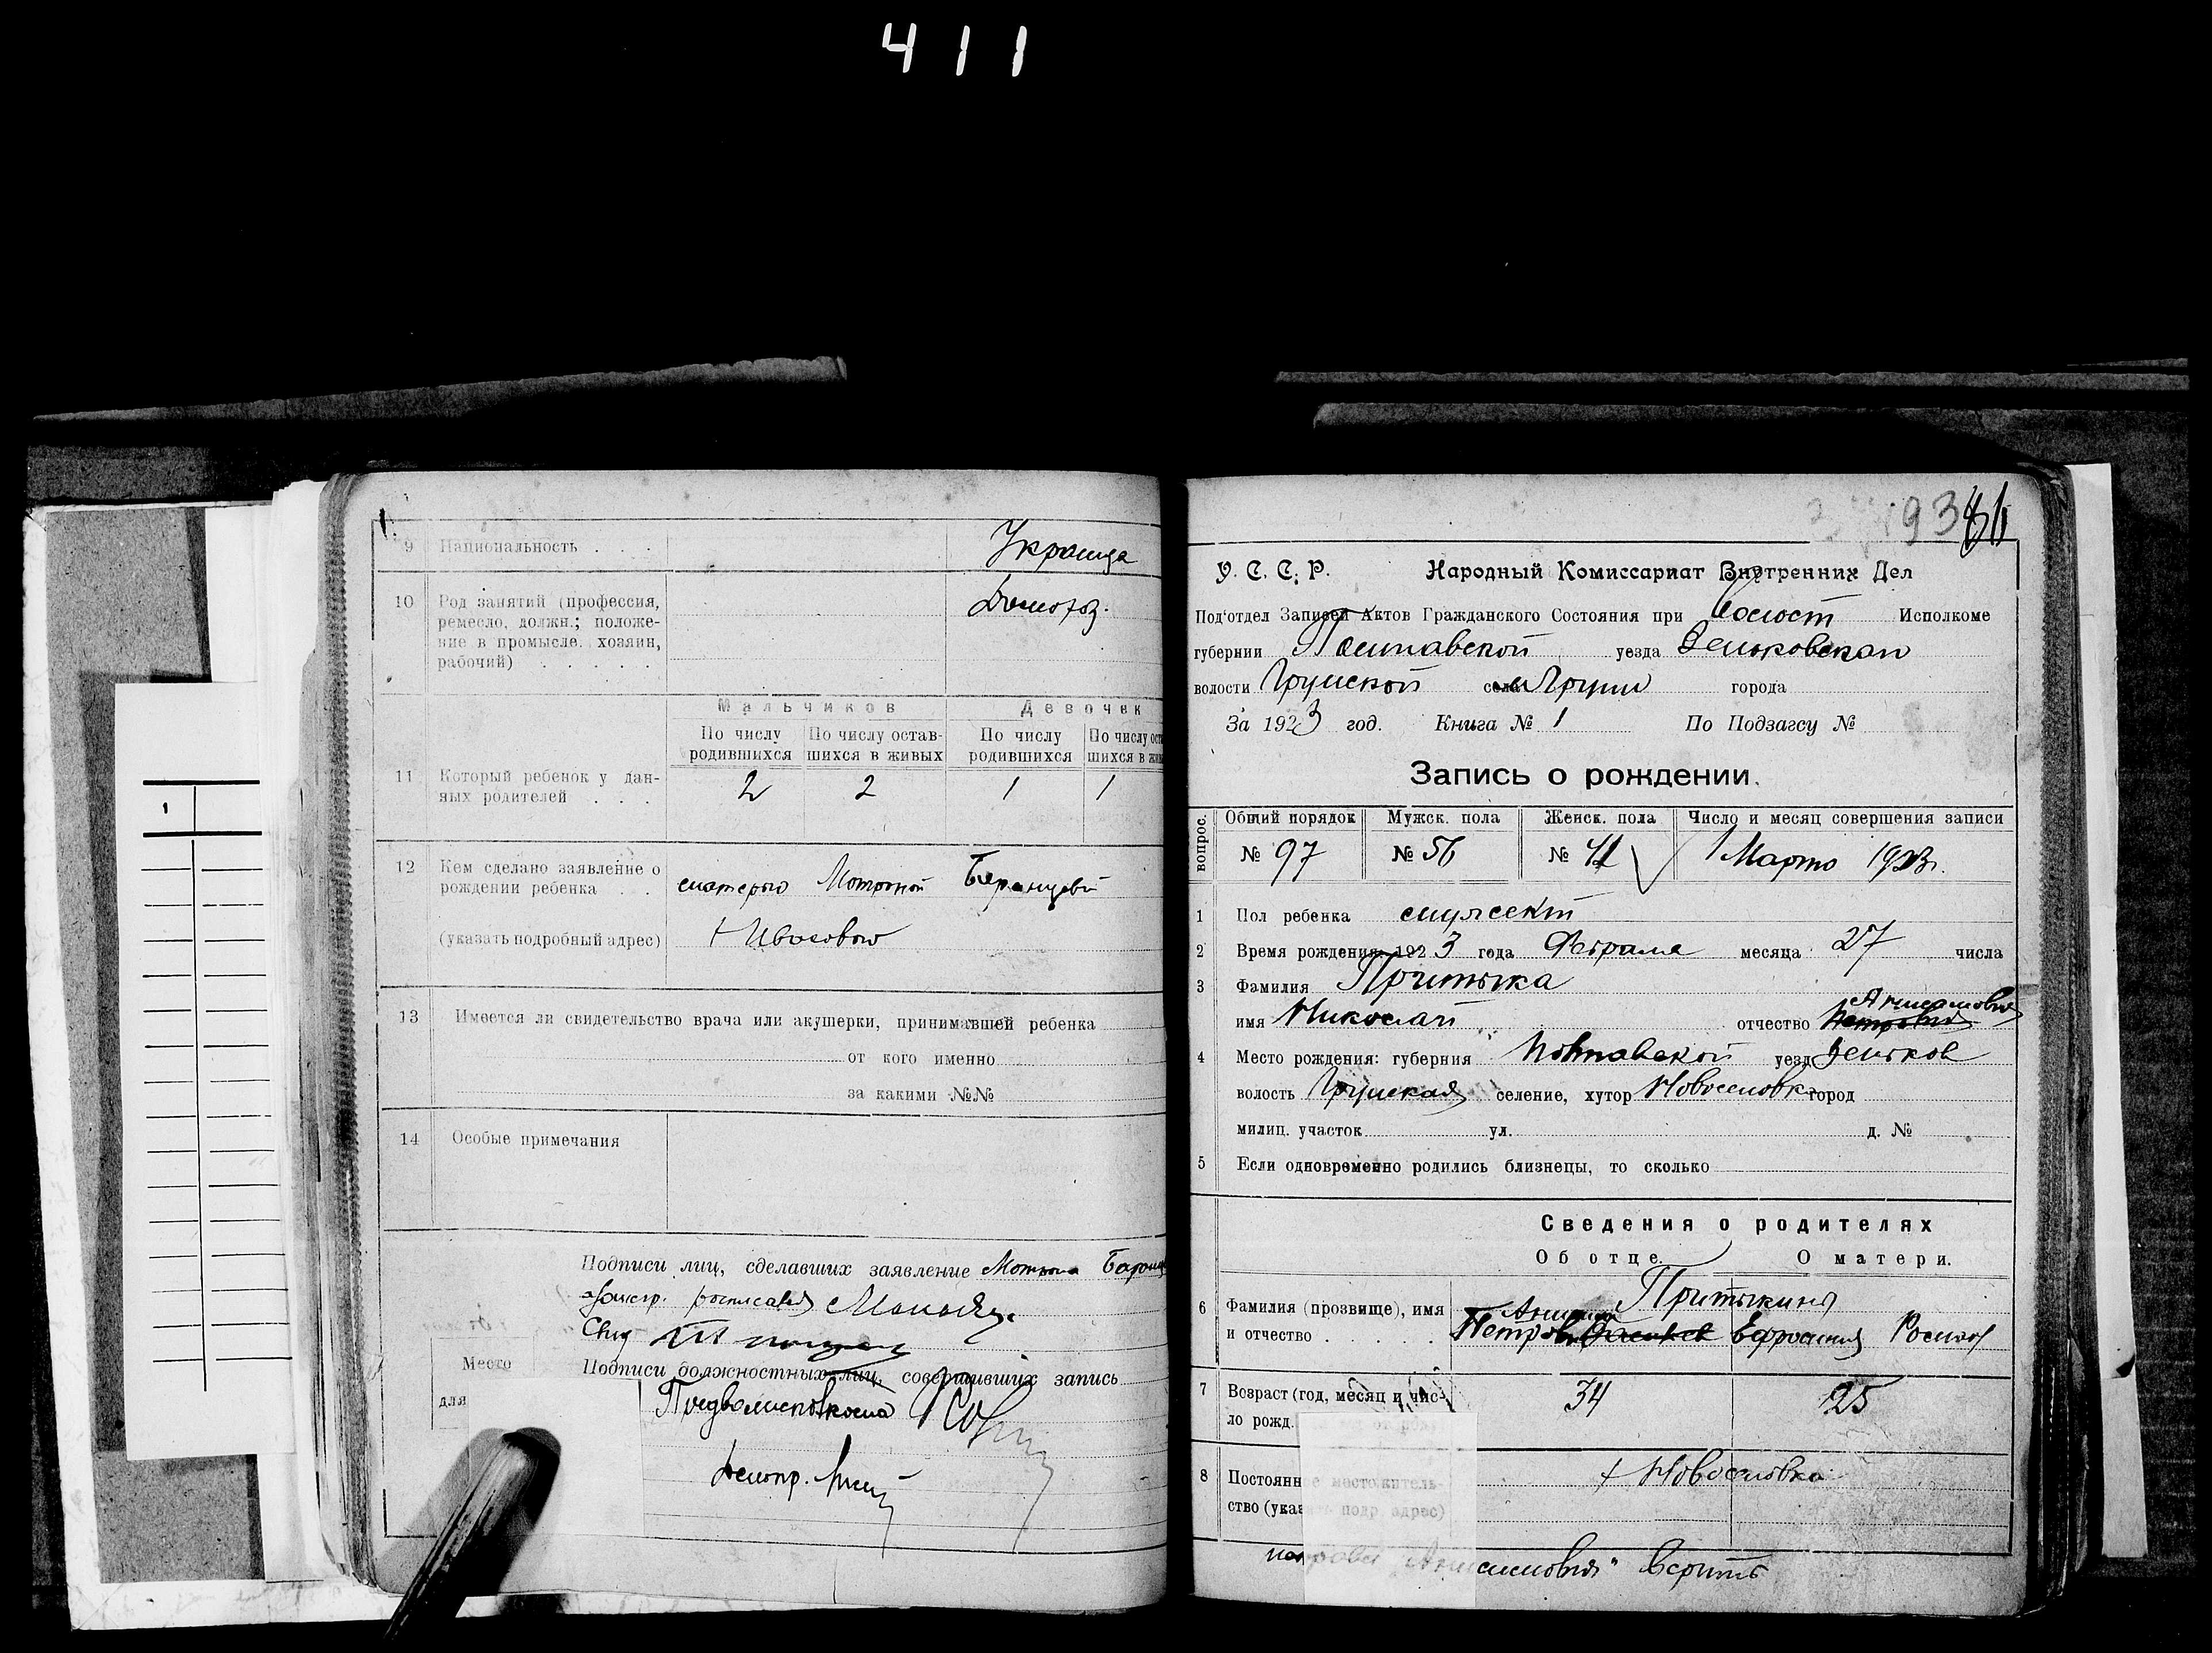 411
9 Национальность . . . Украинца
10 Род занятий (профессия,
ремесло, должн.; положе-
ние в промысле. хозяин,
рабочий) . . . . . Домохоз.
Мальчиков Девочек
По числу родившихся По числу остав-шихся в живых По числу родившихся По числу ост шихся в жив
11 Который ребенок у дан-
ных родителей . . . 2 2 1 1
12 Кем сделано заявление о
рождении ребенка . . матерью Мотроной
(указать подробный адрес)
13 Имеется ли свидетельство врача или акушерки, принимавшей ребенка
от кого именно
за какими №№
14 Особые примечания
Подписи лиц, сделавших заявление
Место Подписи должностных лиц, совершивших запись
для
Делопр.
193
У. С. С. Р. Народный Комиссариат Внутренних Дел
Под'отдел Записей Актов Гражданского Состояния при Волост Исполкоме
губернии Полтавской уезда Зеньковская
волости Грунской села Груни города
За 1923 год. Книга № 1 По Подзагсу №
Запись о рождении.
вопрос. Общий порядок Мужск. пола Женск. пола Число и месяц совершения записи
№ 97 № 56 № 41 1 Марта 1923г.
1 Пол ребенка мужескт
2 Время рождения 1923 года Февраля месяца 27 числа
3 Фамилия Притыка
имя Николай отчество Анисимовия Петровия
4 Место рождения: губерния Полтавской уезд Зеньков
волость Грунская селение, хутор Новоселовка город
милиц. участок ул. д. №
5 Если одновременно родились близнецы, то сколько
Сведения о родителях
Об отце. О матери.
Притыкины
6 Фамилия (прозвище), имя
и отчество . . . . . Петров Ефросиния
7 Возраст (год, месяц и чис-
ло рожд. 34 25
8 Постоянное местожитель-
ство (указать подр адрес) х Новоселовка
Анисимовия" верить